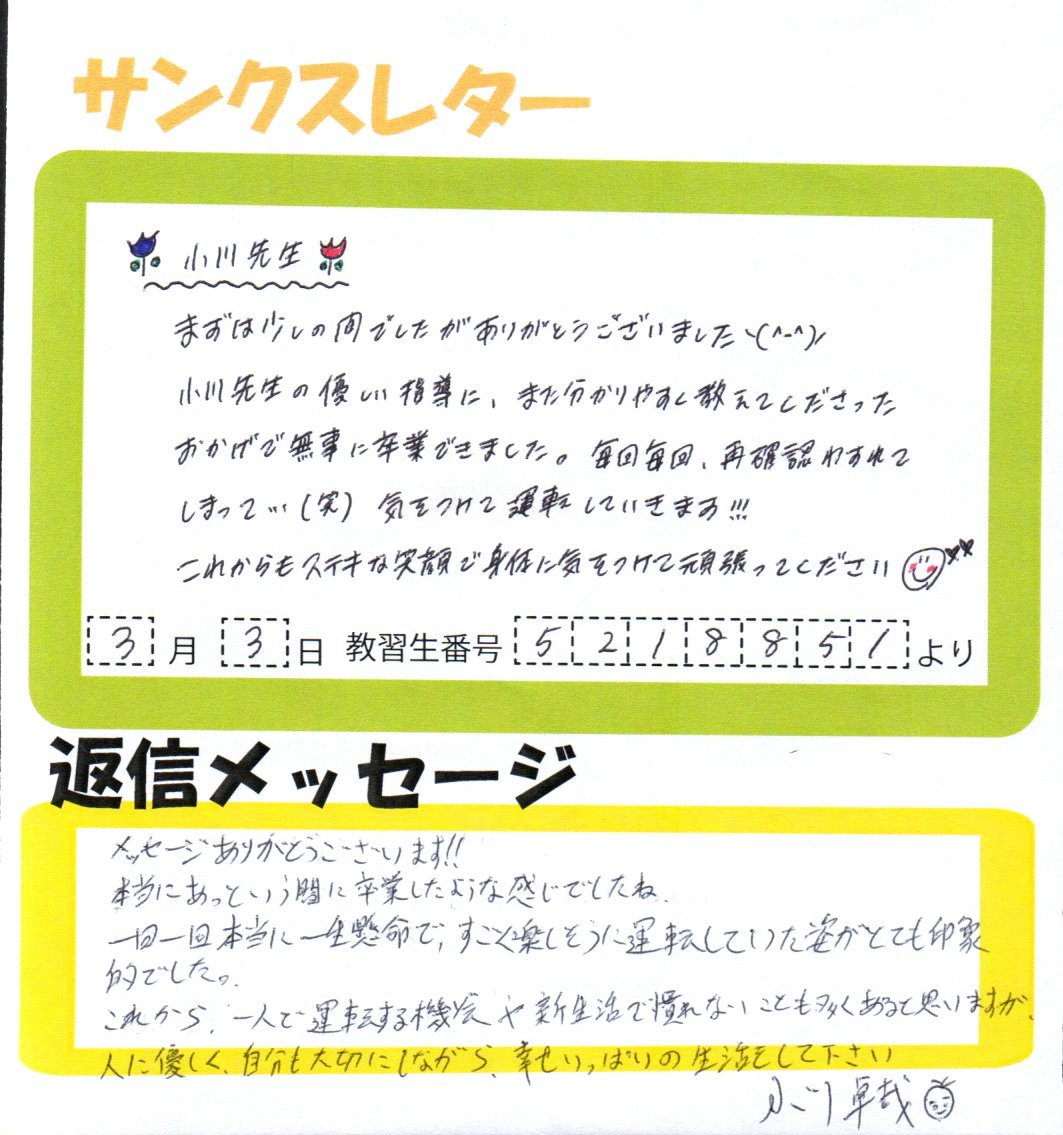 サンクスレター
小川先生
まずは少しの間でしたがありがとうございましたヽ(^-^)ノ
小川先生の優しい指導に、また分かりやすく教えてくださった
おかげで無事に卒業できました。毎回毎回、再確認わすれて
しまって…(笑) 気をつけて運転していきます!!!
これからもステキな笑顔で身体に気をつけて頑張ってください
3月3日 教習生番号 5218851より
返信メッセージ
メッセージありがとうございます!!
本当にあっという間に卒業したような感じでしたね.
一回一回本当に一生懸命で,すごく楽しそうに運転していた姿がとても印象
的でした。
これから,一人で運転する機会や新生活で慣れないことも多くあると思いますが,
人に優しく、自分も大切にしながら、幸せいっぱいの生活をして下さい
卓哉